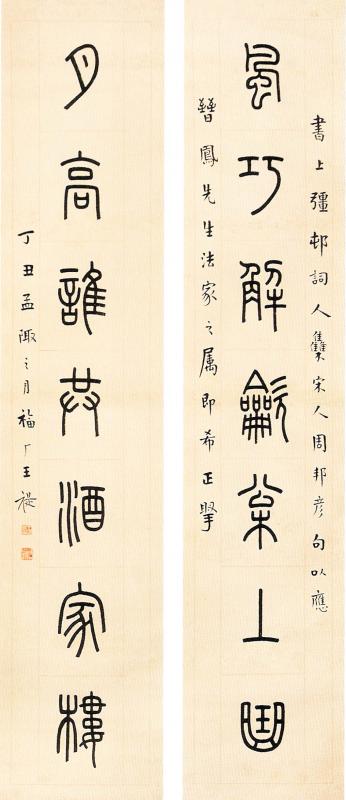 書上彊邨詞人雧宋人周邦彥句以應
風巧解龡枀上曲
鳳先生法家之属即希正掔
月高誰共酒家樓
丁丑孟陬之月福厂王禔